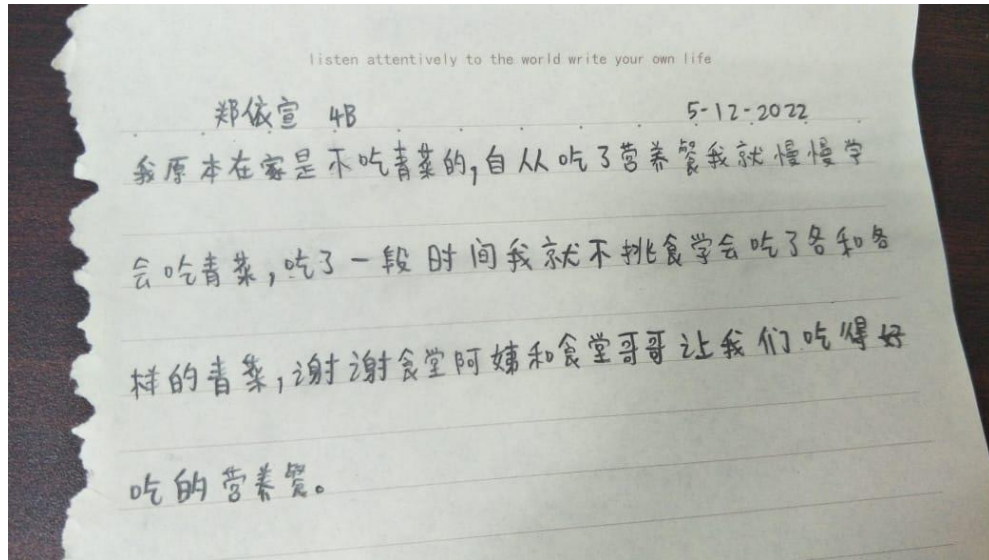 listen attentively to the world write your own life
郑依宣 4B 5-12-2022
我原本在家是不吃青菜的,自从吃了营养餐我就慢慢学
会吃青菜,吃了一段时间我就不挑食学会吃了各和各
样的青菜,谢谢食堂阿姨和食堂哥哥让我们吃得好
吃的营养餐。